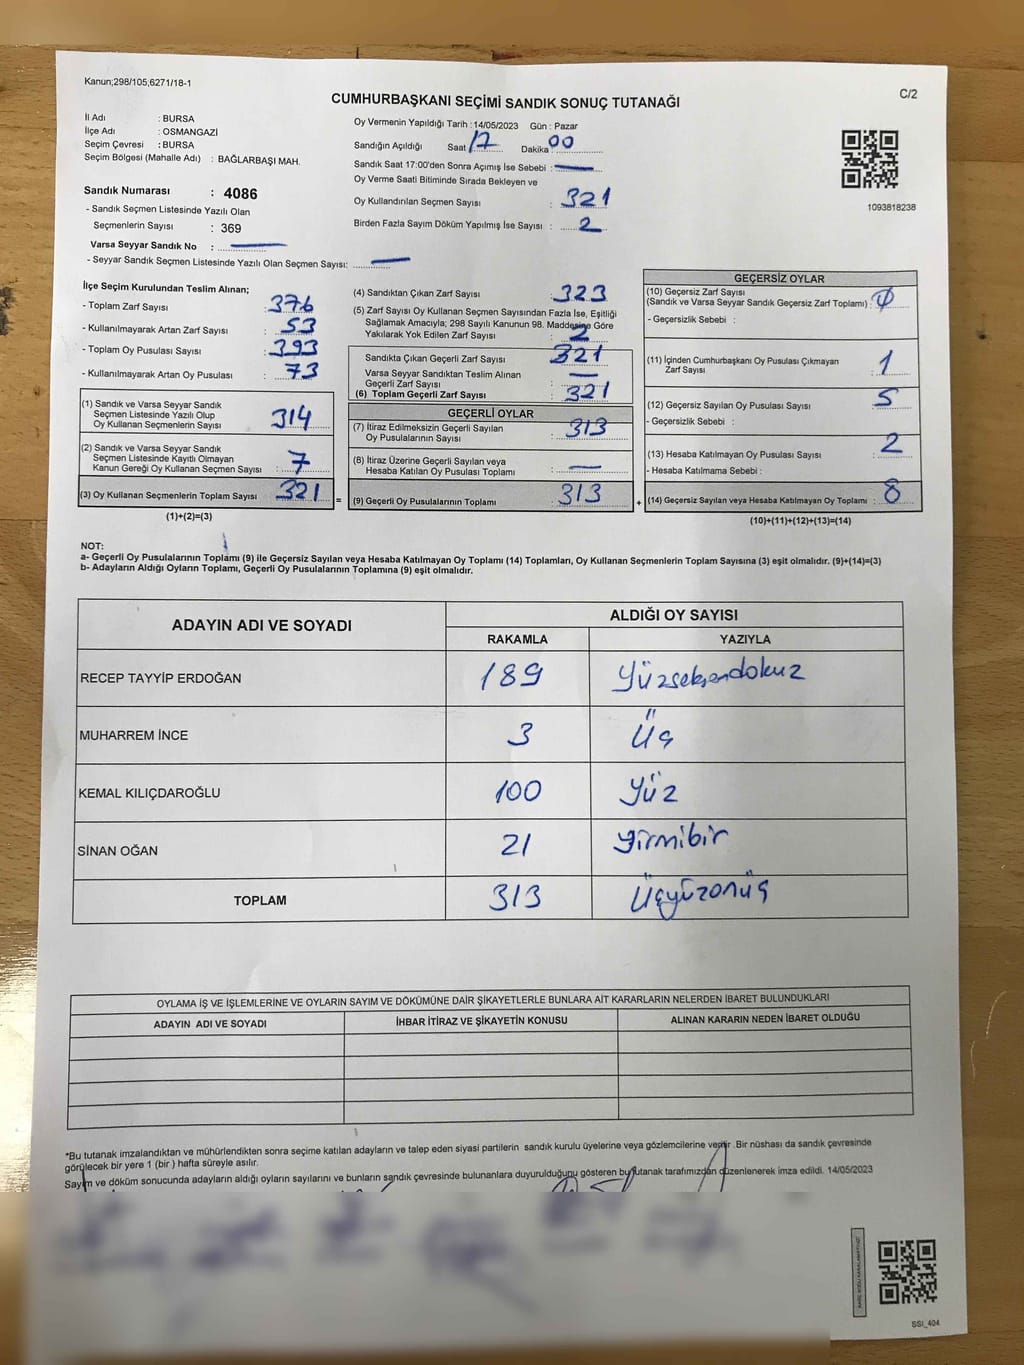 Kanun;298/105;6271/18-1
C/2
CUMHURBAŞKANI SEÇİMİ SANDIK SONUÇ TUTANAĞI
İl Adı : BURSA
İlçe Adı : OSMANGAZİ
Seçim Çevresi : BURSA
Seçim Bölgesi (Mahalle Adı) : BAĞLARBAŞI MAH.
Sandık Numarası : 4086
- Sandık Seçmen Listesinde Yazılı Olan
Seçmenlerin Sayısı : 369
Varsa Seyyar Sandık No :
- Seyyar Sandık Seçmen Listesinde Yazılı Olan Seçmen Sayısı:
Oy Vermenin Yapıldığı Tarih :14/05/2023 Gün : Pazar
Sandığın Açıldığı Saat 17 Dakika 00
Sandık Saat 17:00'den Sonra Açımış İse Sebebi :
Oy Verme Saati Bitiminde Sırada Bekleyen ve
Oy Kullandırılan Seçmen Sayısı : 321
Birden Fazla Sayım Döküm Yapılmış İse Sayısı : 2
1093818238
İlçe Seçim Kurulundan Teslim Alınan;
- Toplam Zarf Sayısı : 376
- Kullanılmayarak Artan Zarf Sayısı : 53
- Toplam Oy Pusulası Sayısı : 393
- Kullanılmayarak Artan Oy Pusulası : 73
(1) Sandık ve Varsa Seyyar Sandık
Seçmen Listesinde Yazılı Olup
Oy Kullanan Seçmenlerin Sayısı 314
(2) Sandık ve Varsa Seyyar Sandık
Seçmen Listesinde Kayıtlı Olmayan
Kanun Gereği Oy Kullanan Seçmen Sayısı : 7
(3) Oy Kullanan Seçmenlerin Toplam Sayısı 321 =
(1)+(2)=(3)
(4) Sandıktan Çıkan Zarf Sayısı : 323
(5) Zarf Sayısı Oy Kullanan Seçmen Sayısından Fazla İse, Eşitliği
Sağlamak Amacıyla; 298 Sayılı Kanunun 98. Maddesine Göre
Yakılarak Yok Edilen Zarf Sayısı : 2
Sandıkta Çıkan Geçerli Zarf Sayısı 321
Varsa Seyyar Sandıktan Teslim Alınan
Geçerli Zarf Sayısı :
(6) Toplam Geçerli Zarf Sayısı : 321
GEÇERLİ OYLAR
(7) İtiraz Edilmeksizin Geçerli Sayılan
Oy Pusulalarının Sayısı : 313
(8) İtiraz Üzerine Geçerli Sayılan veya
Hesaba Katılan Oy Pusulası Toplamı :
(9) Geçerli Oy Pusulalarının Toplamı : 313 +
GEÇERSİZ OYLAR
(10) Geçersiz Zarf Sayısı
(Sandık ve Varsa Seyyar Sandık Geçersiz Zarf Toplamı) :
- Geçersizlik Sebebi :
(11) İçinden Cumhurbaşkanı Oy Pusulası Çıkmayan
Zarf Sayısı : 1
(12) Geçersiz Sayılan Oy Pusulası Sayısı : 5
- Geçersizlik Sebebi :
(13) Hesaba Katılmayan Oy Pusulası Sayısı : 2
- Hesaba Katılmama Sebebi :
(14) Geçersiz Sayılan veya Hesaba Katılmayan Oy Toplamı : 8
(10)+(11)+(12)+(13)=(14)
NOT:
a- Geçerli Oy Pusulalarının Toplamı (9) ile Geçersiz Sayılan veya Hesaba Katılmayan Oy Toplamı (14) Toplamları, Oy Kullanan Seçmenlerin Toplam Sayısına (3) eşit olmalıdır. (9)+(14)=(3)
b- Adayların Aldığı Oyların Toplamı, Geçerli Oy Pusulalarının Toplamına (9) eşit olmalıdır.
ADAYIN ADI VE SOYADI
ALDIĞI OY SAYISI
RAKAMLA YAZIYLA
RECEP TAYYİP ERDOĞAN 189 Yüzseksendokuz
MUHARREM İNCE 3 Üç
KEMAL KILIÇDAROĞLU 100 Yüz
SİNAN OĞAN 21 Yirmibir
TOPLAM 313 Üçyüzonüç
OYLAMA İŞ VE İŞLEMLERİNE VE OYLARIN SAYIM VE DÖKÜMÜNE DAİR ŞİKAYETLERLE BUNLARA AİT KARARLARIN NELERDEN İBARET BULUNDUKLARI
ADAYIN ADI VE SOYADI İHBAR İTİRAZ VE ŞİKAYETİN KONUSU ALINAN KARARIN NEDEN İBARET OLDUĞU
*Bu tutanak imzalandıktan ve mühürlendikten sonra seçime katılan adayların ve talep eden siyasi partilerin sandık kurulu üyelerine veya gözlemcilerine verilir .Bir nüshası da sandık çevresinde
görülecek bir yere 1 (bir ) hafta süreyle asılır.
Sayım ve döküm sonucunda adayların aldığı oyların sayılarını ve bunların sandık çevresinde bulunanlara duyurulduğunu gösteren bu tutanak tarafımızdan düzenlenerek imza edildi. 14/05/2023
SSI_404